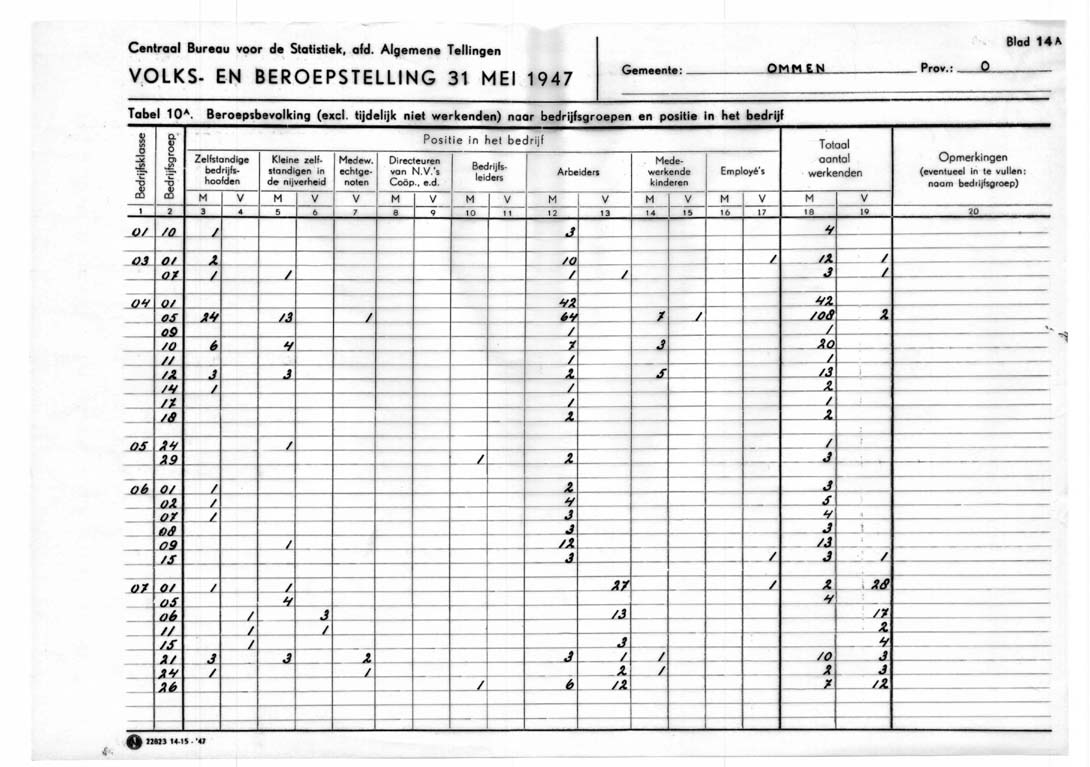 Centraal Bureau voor de Statistiek, afd. Algemene Tellingen
VOLKS- EN BEROEPSTELLING 31 MEI 1947
Gemeente: OMMEN Prov.: O
Blad 14A
Tabel 10A. Beroepsbevolking (excl. tijdelijk niet werkenden) naar bedrijfsgroepen en positie in het bedrijf
Bedrijfsklasse
Bedrijfsgroep
Positie in het bedrijf
Zelfstandige bedrijfs-hoofden
Kleine zelf-standigen in de nijverheid
Medew. echtge-noten
Directeuren van N.V.'s Coöp., e.d.
Bedrijfs-leiders
Arbeiders
Mede-werkende kinderen
Employé's
Totaal aantal werkenden
Opmerkingen (eventueel in te vullen: naam bedrijfsgroep)
M V M V V M V M V M V M V M V M V
1 2 3 4 5 6 7 8 9 10 11 12 13 14 15 16 17 18 19 20
01 10 1 3 4
03 01 2 10 1 12 1
07 1 1 1 1 3 1
04 01 42 42
05 24 13 1 64 7 1 108 2
09 1 1
10 6 4 7 3 20
11 1 1
12 3 3 2 5 13
14 1 1 2
17 1 1
18 2 2
05 24 1 1
29 1 2 3
06 01 1 2 3
02 1 4 5
07 1 3 4
08 3 3
09 1 12 13
15 3 1 3 1
07 01 1 1 27 1 2 28
05 4 4
06 1 3 13 17
11 1 1 2
15 1 3 4
21 3 3 2 3 1 1 10 3
24 1 1 2 1 2 3
26 1 6 12 7 12
N 22823 14-15 - '47